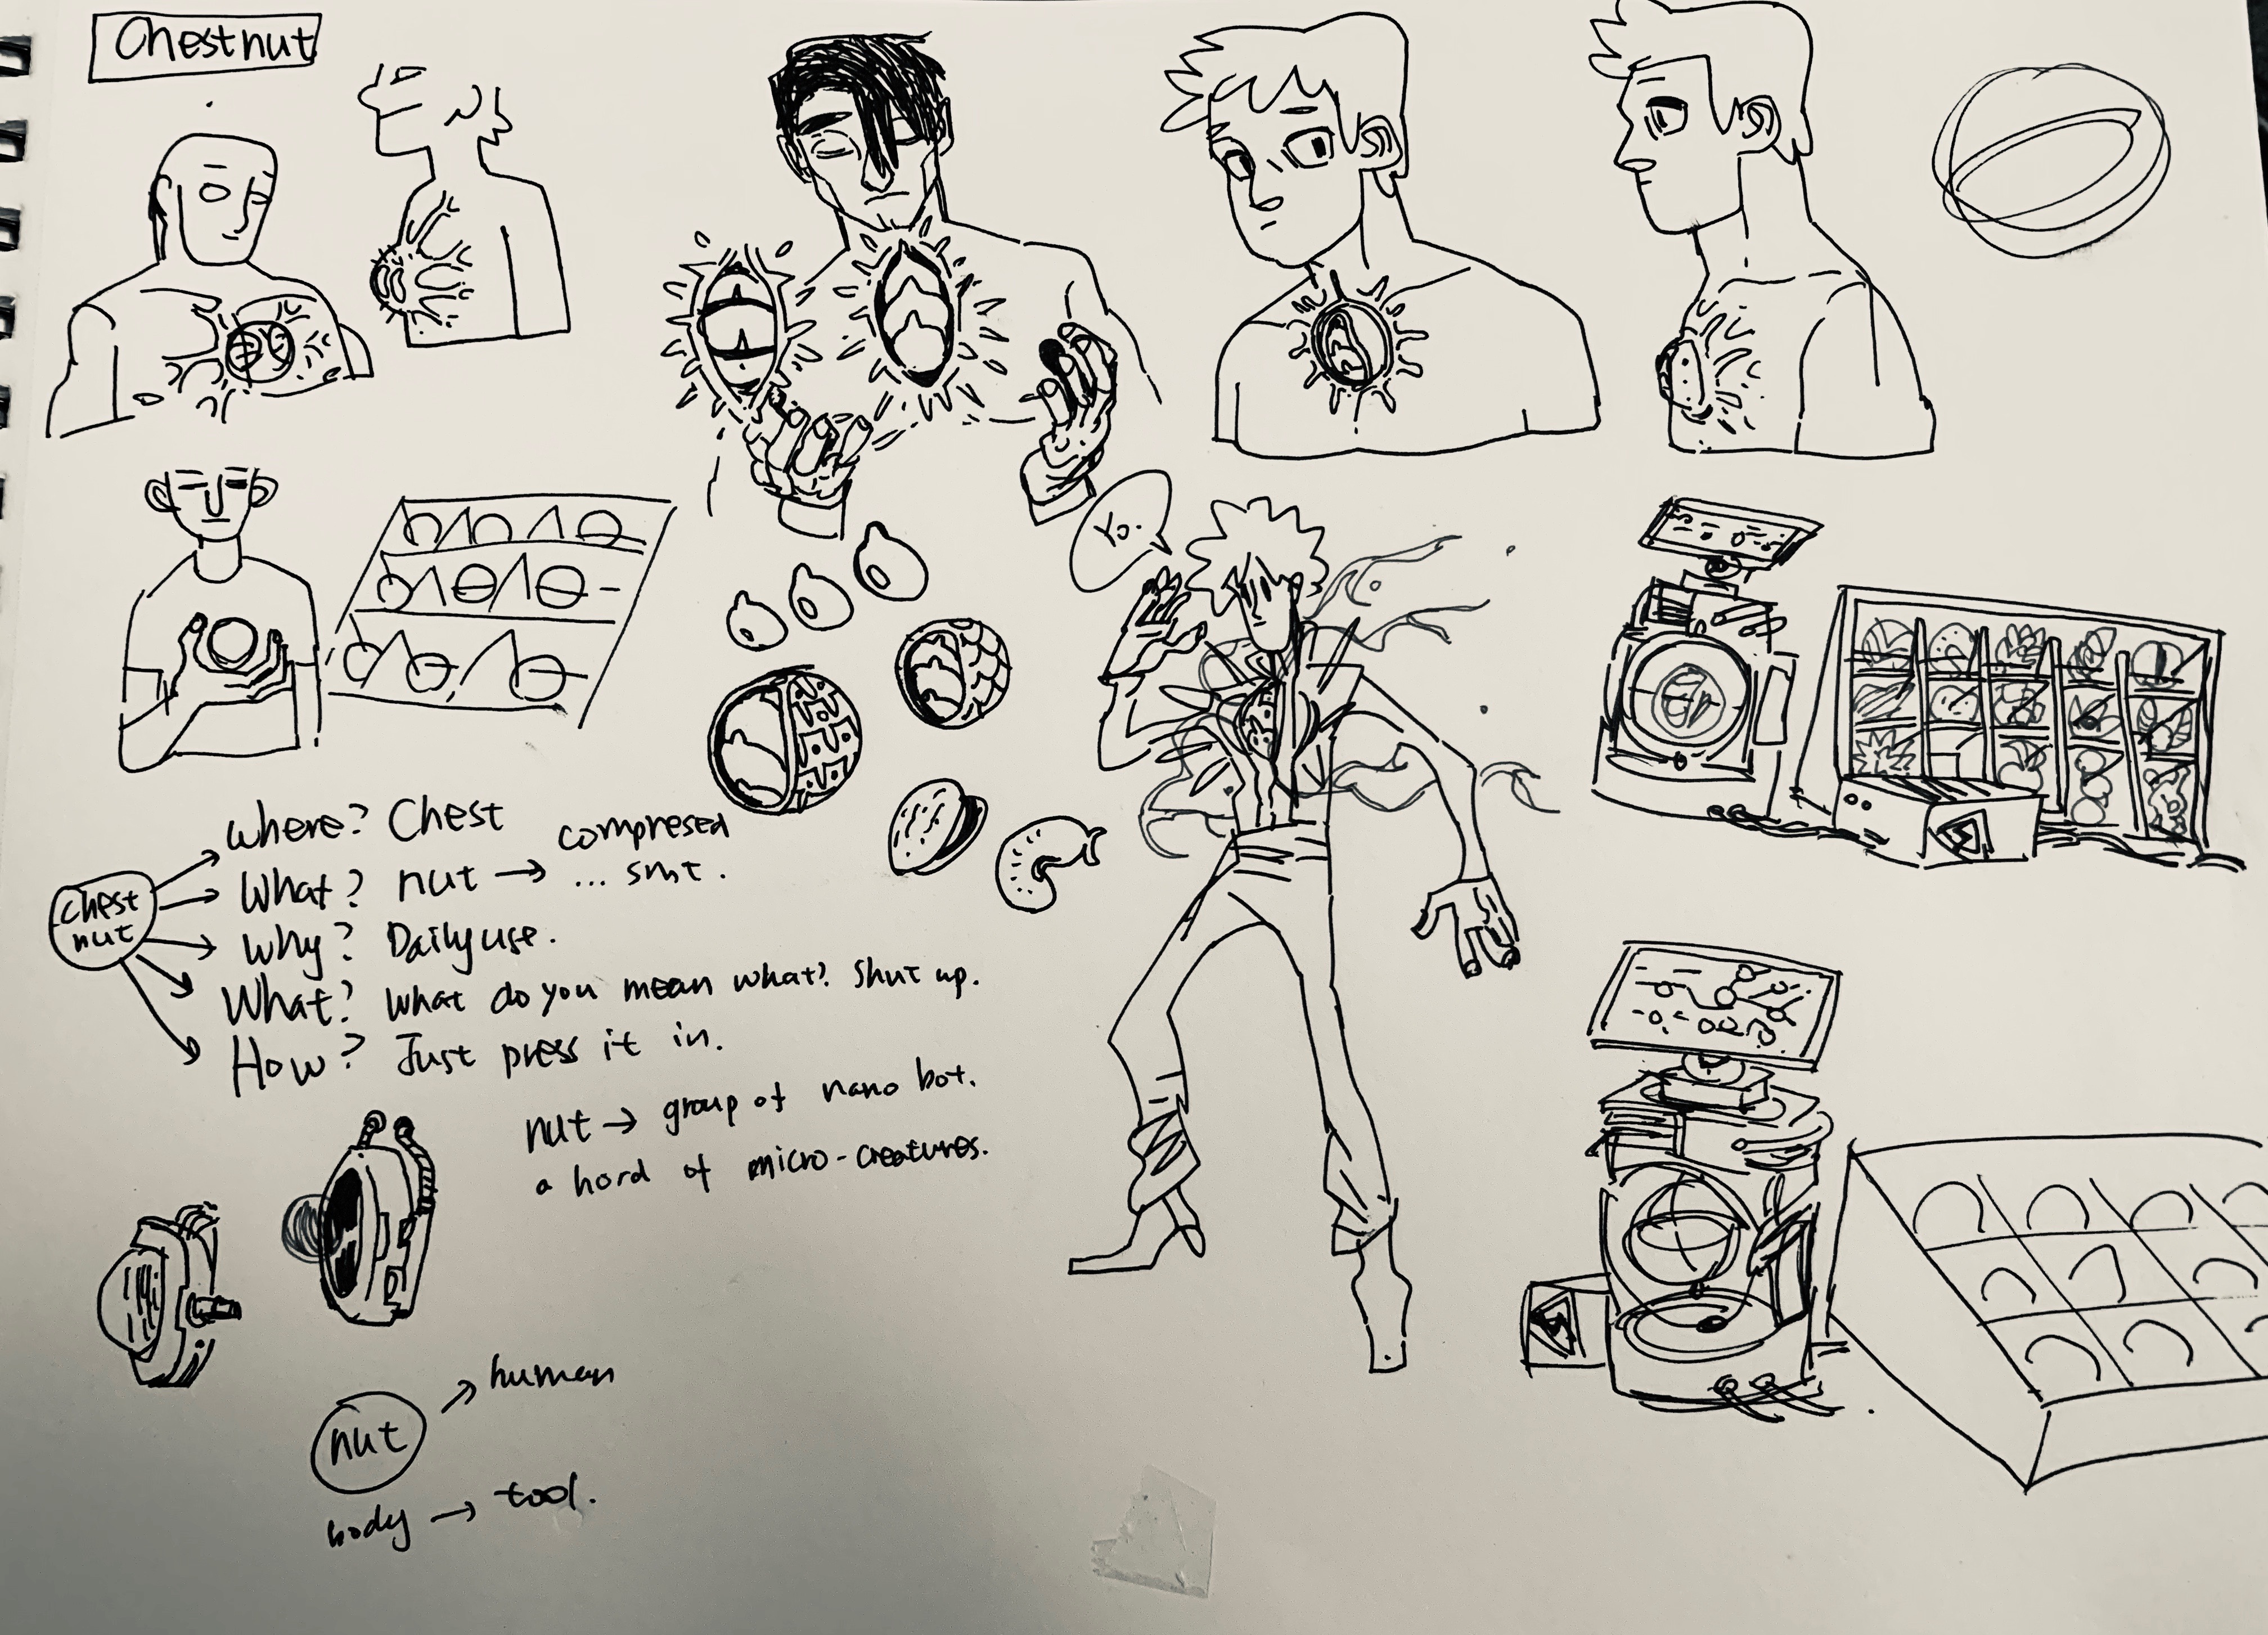 Chestnut
Yo.
chest
nut
where? Chest
What? nut → compresed
... smt.
Why? Daily use.
What? What do you mean what? Shut up.
How? Just press it in.
nut → group of nano bot.
a hord of micro-creatures.
nut → human
body → tool.